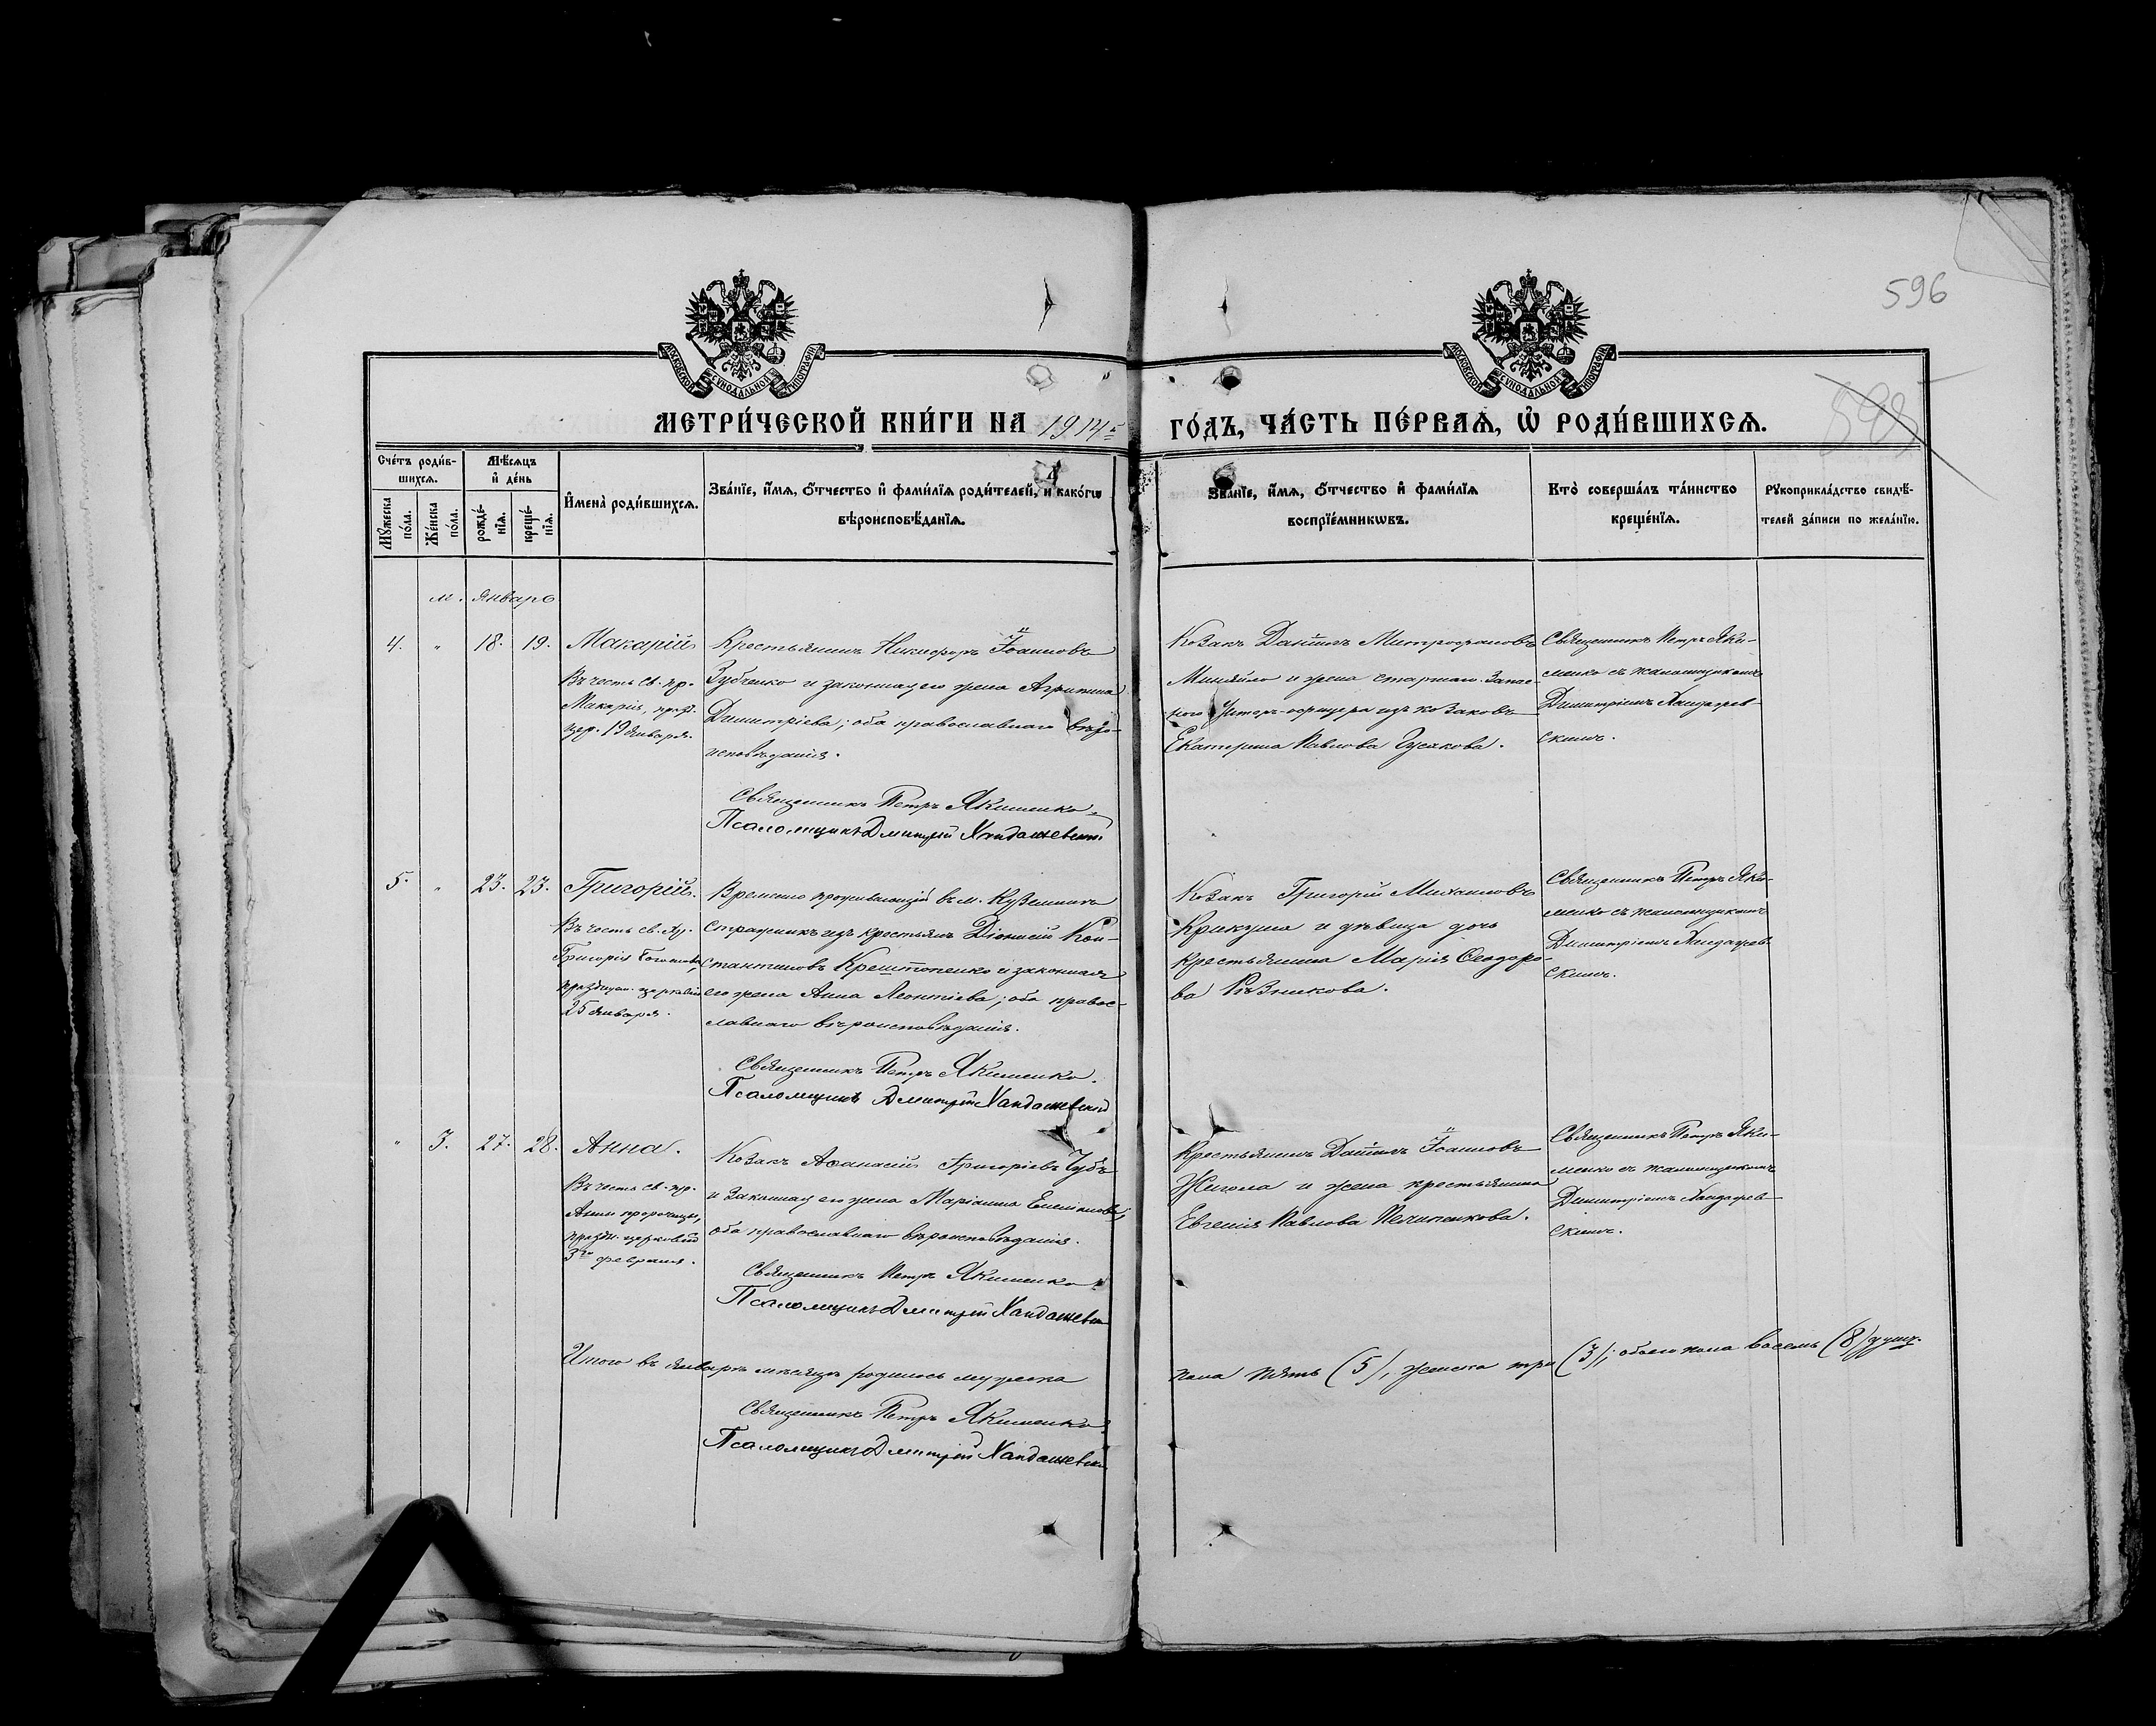 596
МОСКОВСКОЙ СУНОДАЛЬНОЙ ТИПОГРАФІИ
МОСКОВСКОЙ СУНОДАЛЬНОЙ ТИПОГРАФІИ
МЕТРИ́ЧЕСКОЙ КНИ́ГИ НА 1914 ГО́ДЪ, ЧА́СТЬ ПЕ́РВАѦ, Ѡ҆ РОДИ́ВШИХСѦ.
Сче́тъ роди́в-
шихсѧ.
Мꙋ́жеска по́ла.
Же́нска по́ла.
Мѣ́сѧцъ
и҆ де́нь
рожде́-
нїѧ.
креще́-
нїѧ.
И҆мена̀ роди́вшихсѧ.
Зва́нїе, и҆́мѧ, ѻ҆́тчество и҆ фами́лїѧ роди́телей, и҆ како́гѡ
вѣроисповѣ́данїѧ.
Зва́нїе, и҆́мѧ, ѻ҆́тчество и҆ фами́лїѧ
воспрїе́мникѡвъ.
Кто̀ соверша́лъ та́инство
креще́нїѧ.
Рꙋкоприкла́дство свидѣ́-
телей за́писи по жела́нїю.
м. Январь
4. " 18. 19. Макарій
Въ честь св. пр.
Макарія, празд.
цер. 19 января.
Крестьянинъ Никифоръ Іоанновъ
Зубченко и законная его жена Агрипина
Димитріева; оба православнаго вѣро-
исповѣданія.
Священникъ Петръ Якименко
Псаломщикъ Дмитрій Хандажевскій
Козакъ Даніилъ Митрофановъ
Миняйло и жена старшаго запас-
ного унтеръ-офицера изъ козаковъ
Екатерина Павлова Гусакова.
Священникъ Петръ Яки-
менко съ псаломщикомъ
Димитріемъ Хандажев-
скимъ.
5. " 23. 23. Григорій.
Въ честь св.
Григорія Богослова,
празднуем. церковію
25 января.
Временно проживающій въ м. Куземинъ
стражникъ изъ крестьянъ Діонисій Кон-
стантиновъ и законная
его жена Анна Леонтіева; оба правос-
лавнаго вѣроисповѣданія.
Священникъ Петръ Якименко.
Псаломщикъ Дмитрій Хандажевскій
Козакъ Григорій Михаиловъ
Крикуша и дѣвица дочь
крестьянина Марія Ѳеодоро-
ва Рѣзникова.
Священникъ Петръ Яки-
менко съ псаломщикомъ
Димитріемъ Хандажев-
скимъ.
" 3. 27. 28. Анна.
Въ честь св. пр.
Анны пророчицы,
праздн. церковію
3го февраля.
Козакъ Аѳанасій Григоріевъ Чубъ
и законная его жена Маріанна Емеліанова;
оба православнаго вѣроисповѣданія.
Священникъ Петръ Якименко
Псаломщикъ Дмитрій Хандажевскій
Крестьянинъ Даніилъ Іоанновъ
Жигола и жена крестьянина
Евгенія Павлова Печипенкова.
Священникъ Петръ Яки-
менко съ псаломщикомъ
Димитріемъ Хандажев-
скимъ.
Итого въ январѣ мѣсяцѣ родилось мужеска пола пять (5), женска три (3); обоего пола восемь (8) душъ.
Священникъ Петръ Якименко
Псаломщикъ Дмитрій Хандажевскій